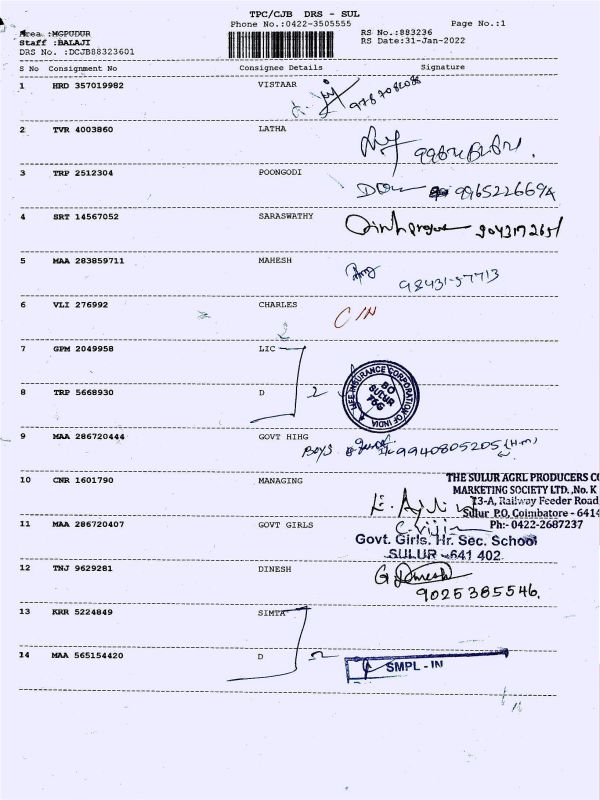 TPC/CJB DRS - SUL
Phone No.:0422-3505555
Page No.:1
Area :MGPUDUR
Staff :BALAJI
DRS No. :DCJB88323601
RS No.:883236
RS Date:31-Jan-2022
S No Consignment No Consignee Details Signature
1 HRD 357019982 VISTAAR
2 TVR 4003860 LATHA
3 TRP 2512304 POONGODI
9965226694
4 SRT 14567052 SARASWATHY
5 MAA 283859711 MAHESH
98431-57713
6 VLI 276992 CHARLES
7 GPM 2049958 LIC
8 TRP 5668930 D 2
LIFE INSURANCE CORPORATION OF INDIA
BO
SULUR
76G
9 MAA 286720444 GOVT HIHG
Boys 9940805205 (H.M)
10 CNR 1601790 MANAGING
THE SULUR AGRL PRODUCERS CO
MARKETING SOCIETY LTD.,No. K
73-A, Railway Feeder Road
Sulur P.O, Coimbatore - 6414
Ph:- 0422-2687237
11 MAA 286720407 GOVT GIRLS
Govt. Girls. Hr. Sec. School
SULUR - 641 402
12 TNJ 9629281 DINESH
G Dinesh
9025385546.
13 KRR 5224849 SIMTA
14 MAA 565154420 D
SMPL - IN